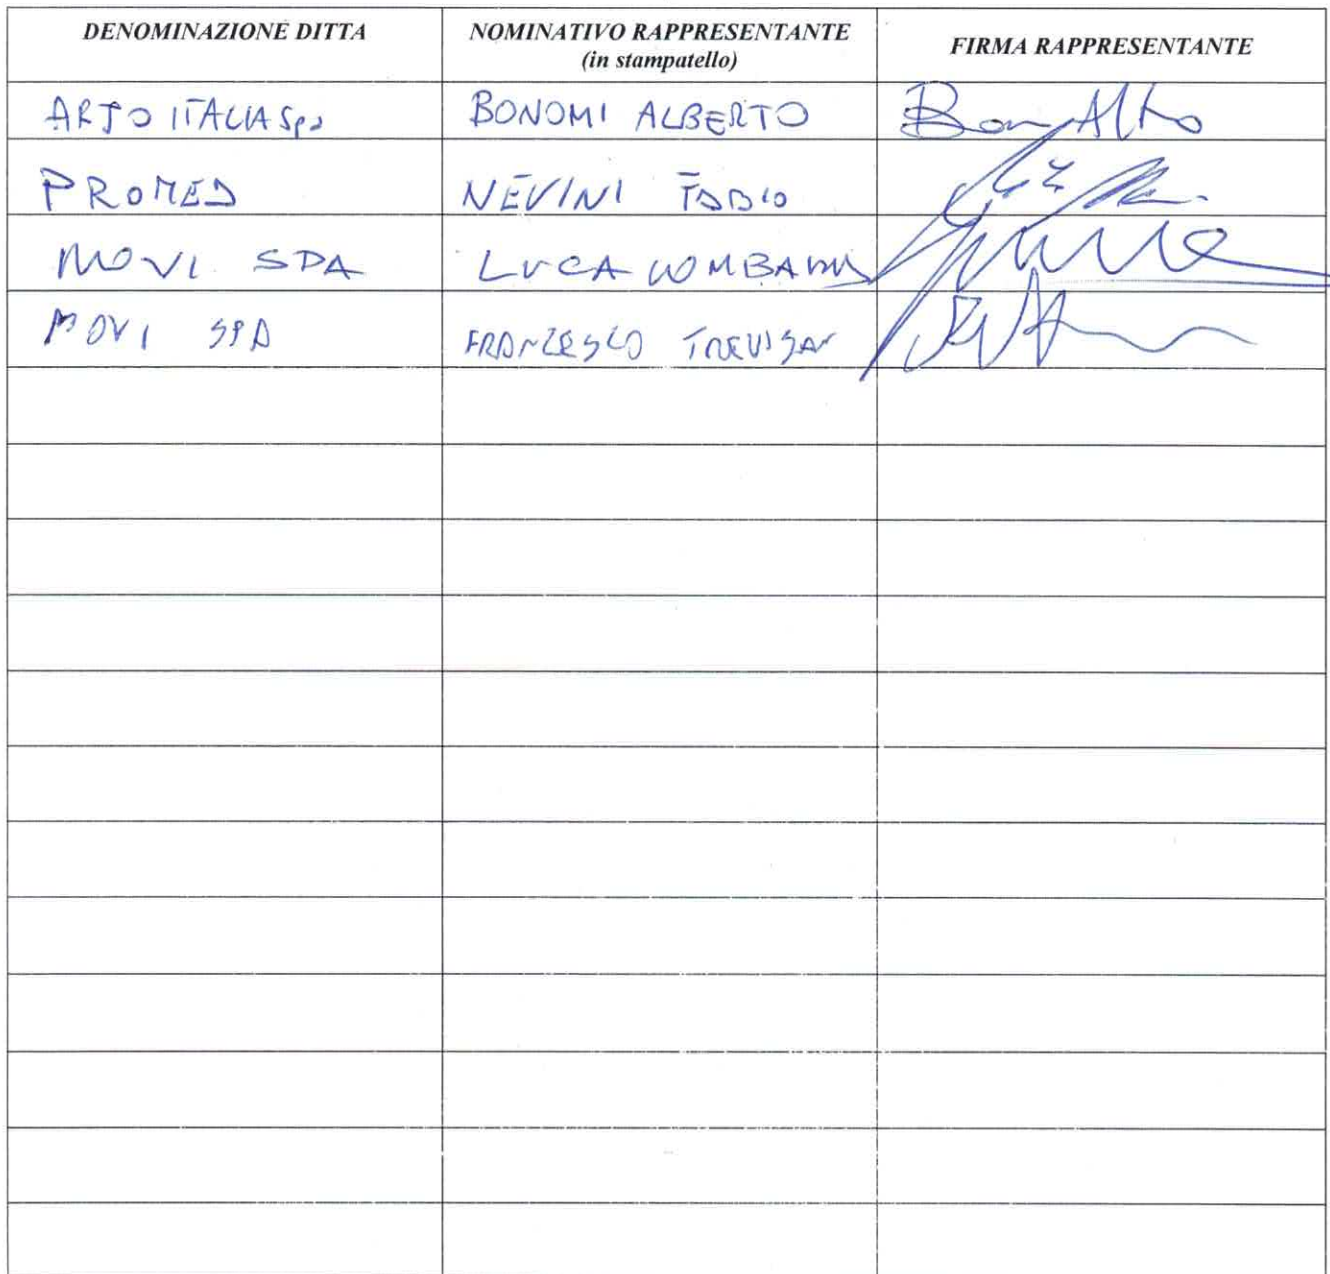 DENOMINAZIONE DITTA
NOMINATIVO RAPPRESENTANTE
(in stampatello)
FIRMA RAPPRESENTANTE
ARJO ITALIA Spa
BONOMI ALBERTO
PROMED
NEVINI FABIO
MOVI SPA
LUCA LOMBARDI
MOVI SPA
FRANCESCO TREVISAN